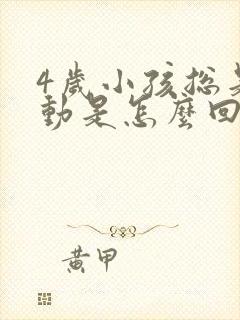 4歲小孩總是
動是怎麼回
黃甲